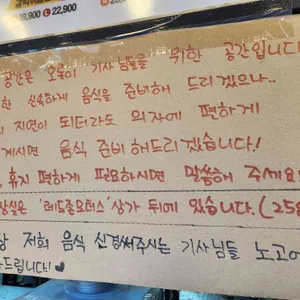 19,900 → 22,900
공간은 오롯이 기사님들을 위한 공간입니다
한 신속하게 음식을 준비해 드리겠으나..
지연이 되더라도 의자에 편하게
계시면 음식 준비해드리겠습니다!
휴지 편하게 필요하시면 말씀해 주세요!
장실은 '레드홀모터스' 상가 뒤에 있습니다. (258
상 저희 음식 신경써주시는 기사님들 노고에
드립니다! ♥